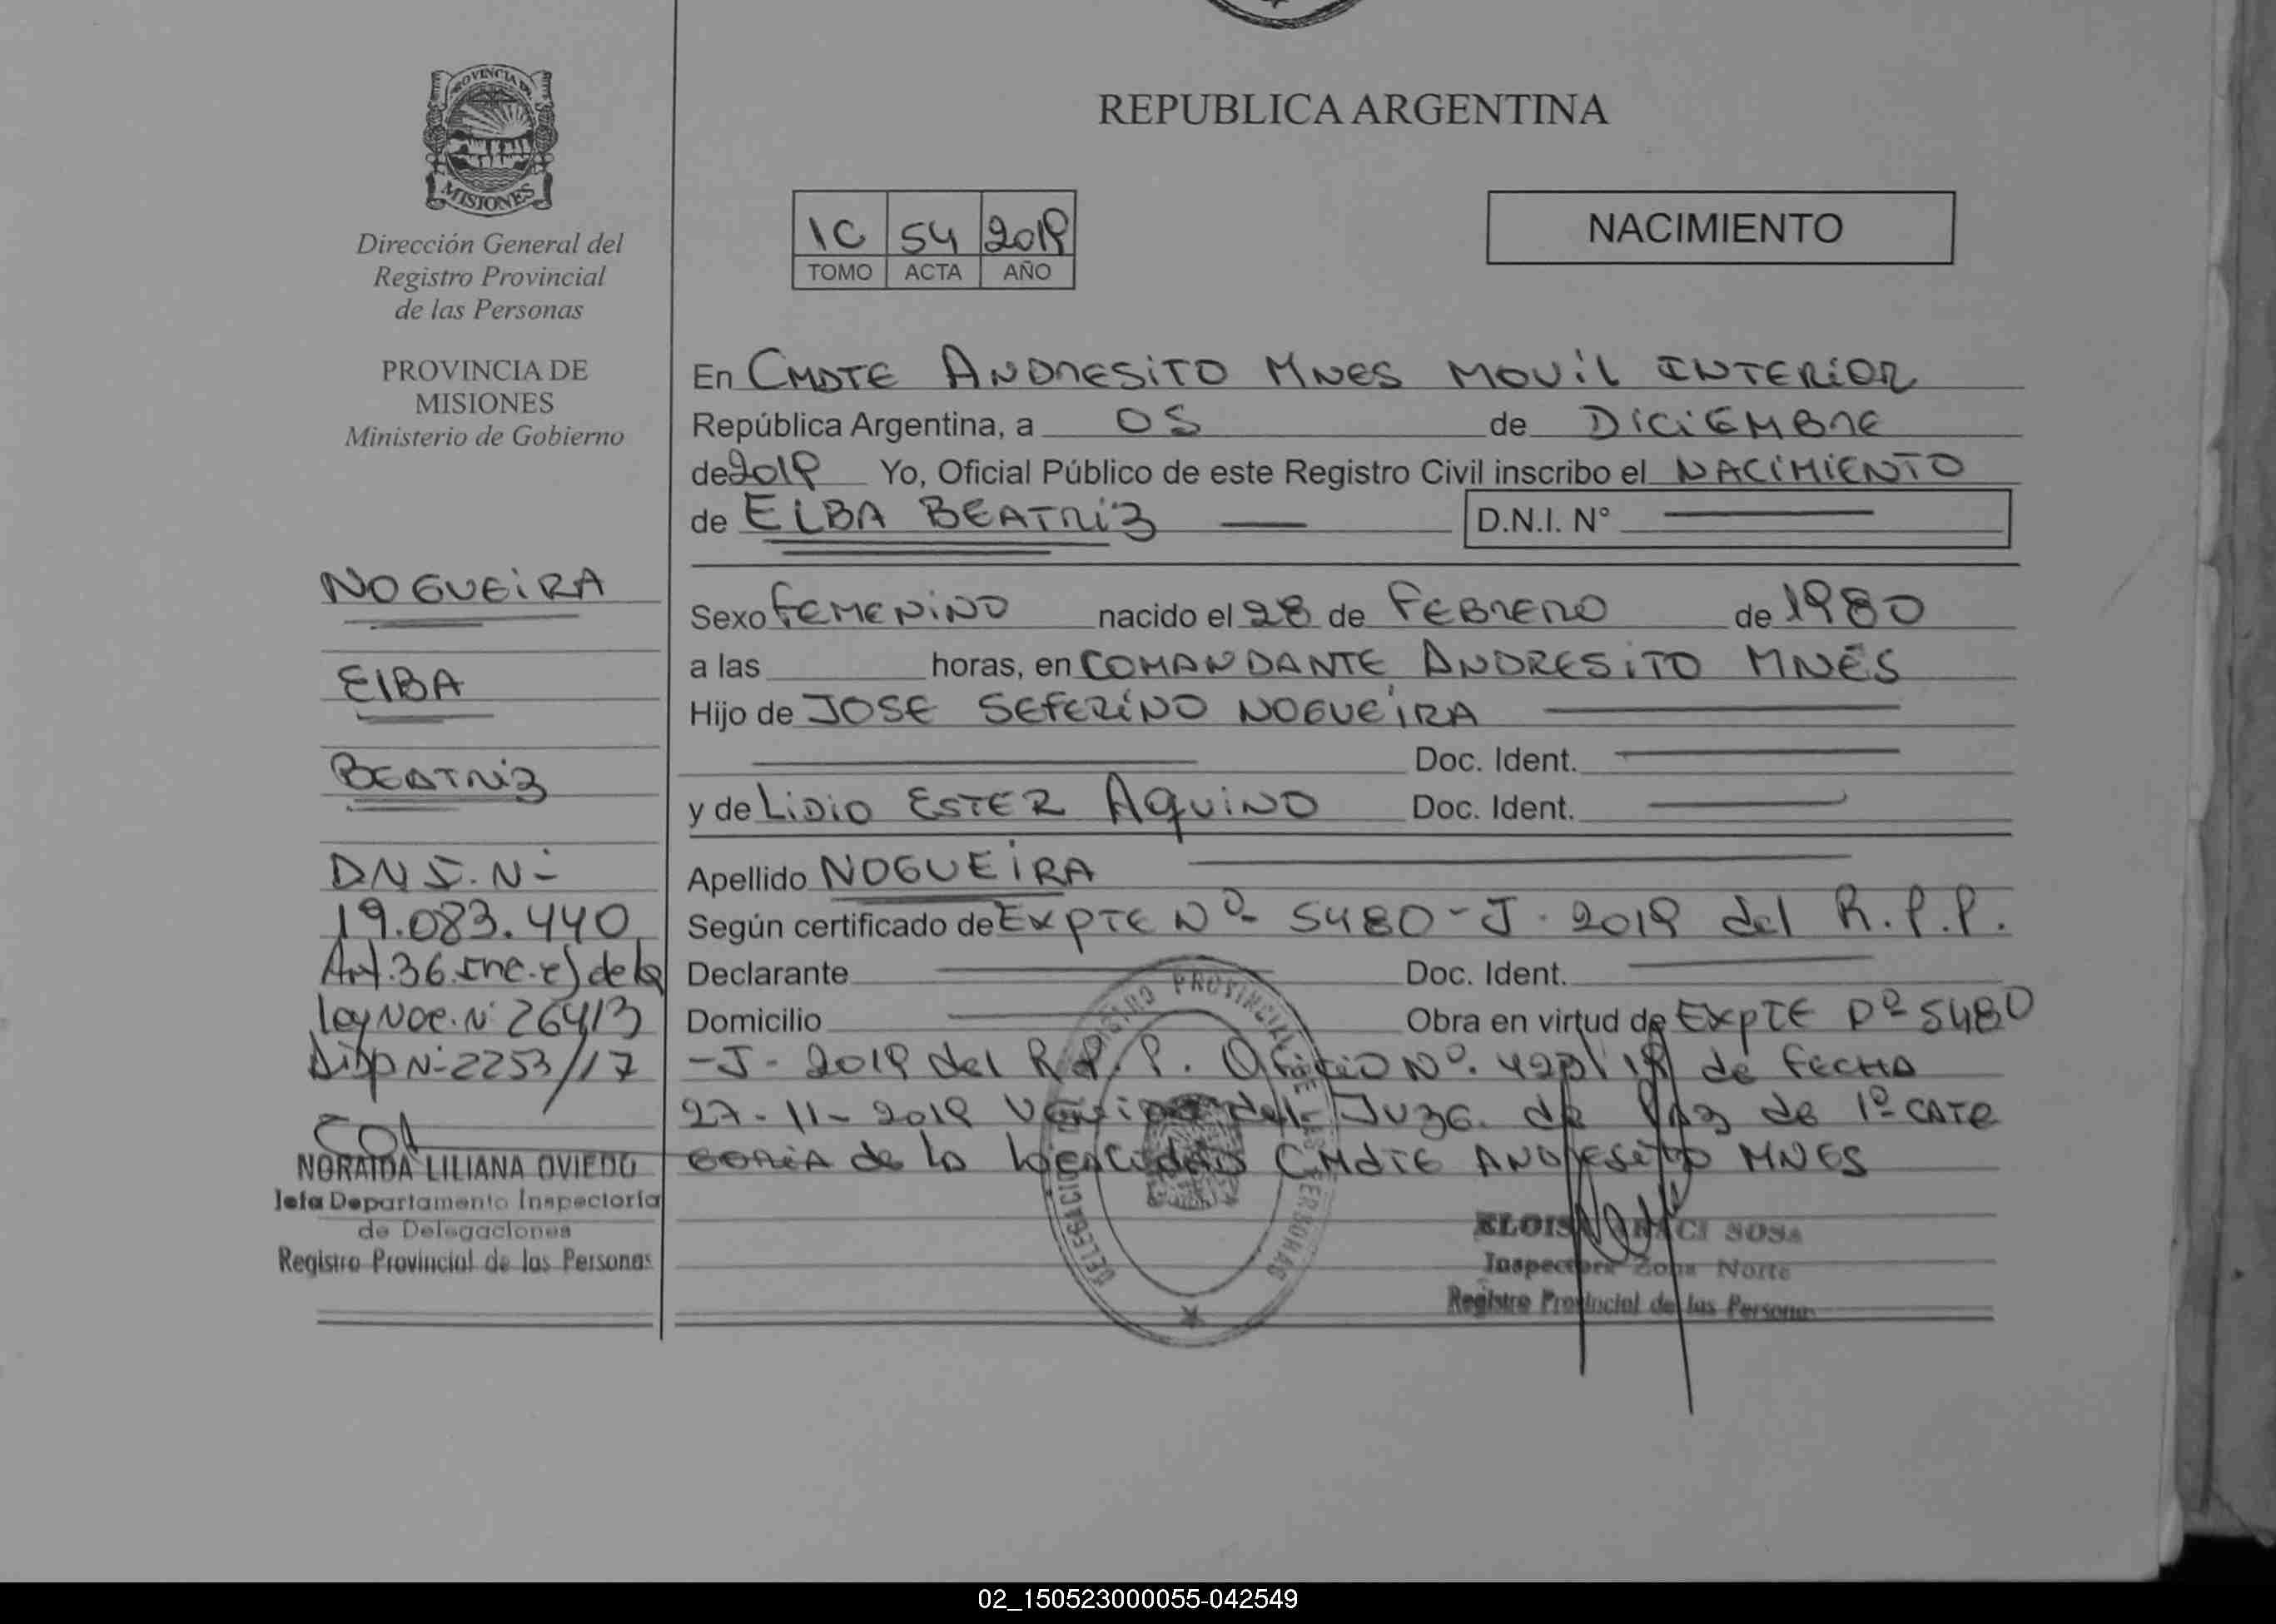 REPUBLICA ARGENTINA
PROVINCIA DE
MISIONES
Dirección General del
Registro Provincial
de las Personas
PROVINCIA DE
MISIONES
Ministerio de Gobierno
1C 54 2019
TOMO ACTA AÑO
NACIMIENTO
En CMDTE ANDRESITO MNES MOVIL INTERIOR
República Argentina, a 05 de DICIEMBRE
de 2019 Yo, Oficial Público de este Registro Civil inscribo el NACIMIENTO
de ELBA BEATRIZ D.N.I. N°
Sexo FEMENINO nacido el 28 de FEBRERO de 1980
a las horas, en COMANDANTE ANDRESITO MNES
Hijo de JOSE SEFERINO NOGUEIRA
Doc. Ident.
y de LIDIO ESTER AQUINO Doc. Ident.
Apellido NOGUEIRA
Según certificado de EXPTE Nº 5480-J-2019 del R.P.P.
Declarante Doc. Ident.
Domicilio Obra en virtud de EXPTE Nº 5480
-J-2019 del R.P.P. Oficio Nº. /19 de FECHA
27-11-2019 del JUZG. de Paz de 1º CATE
GORIA de la CMDTE ANDRESITO MNES
NOGUEIRA
ELBA
BEATRIZ
DNI. N-
19.083.440
Art. 36 Inc. e) de la
Ley Nac. N 26413
Disp N-2253/17
NORAIDA LILIANA OVIEDO
Jefa Departamento Inspectoría
de Delegaciones
Registro Provincial de las Personas
ELOISA SOSA
Inspectora Zona Norte
Registro Provincial de las Personas
02_150523000055-042549